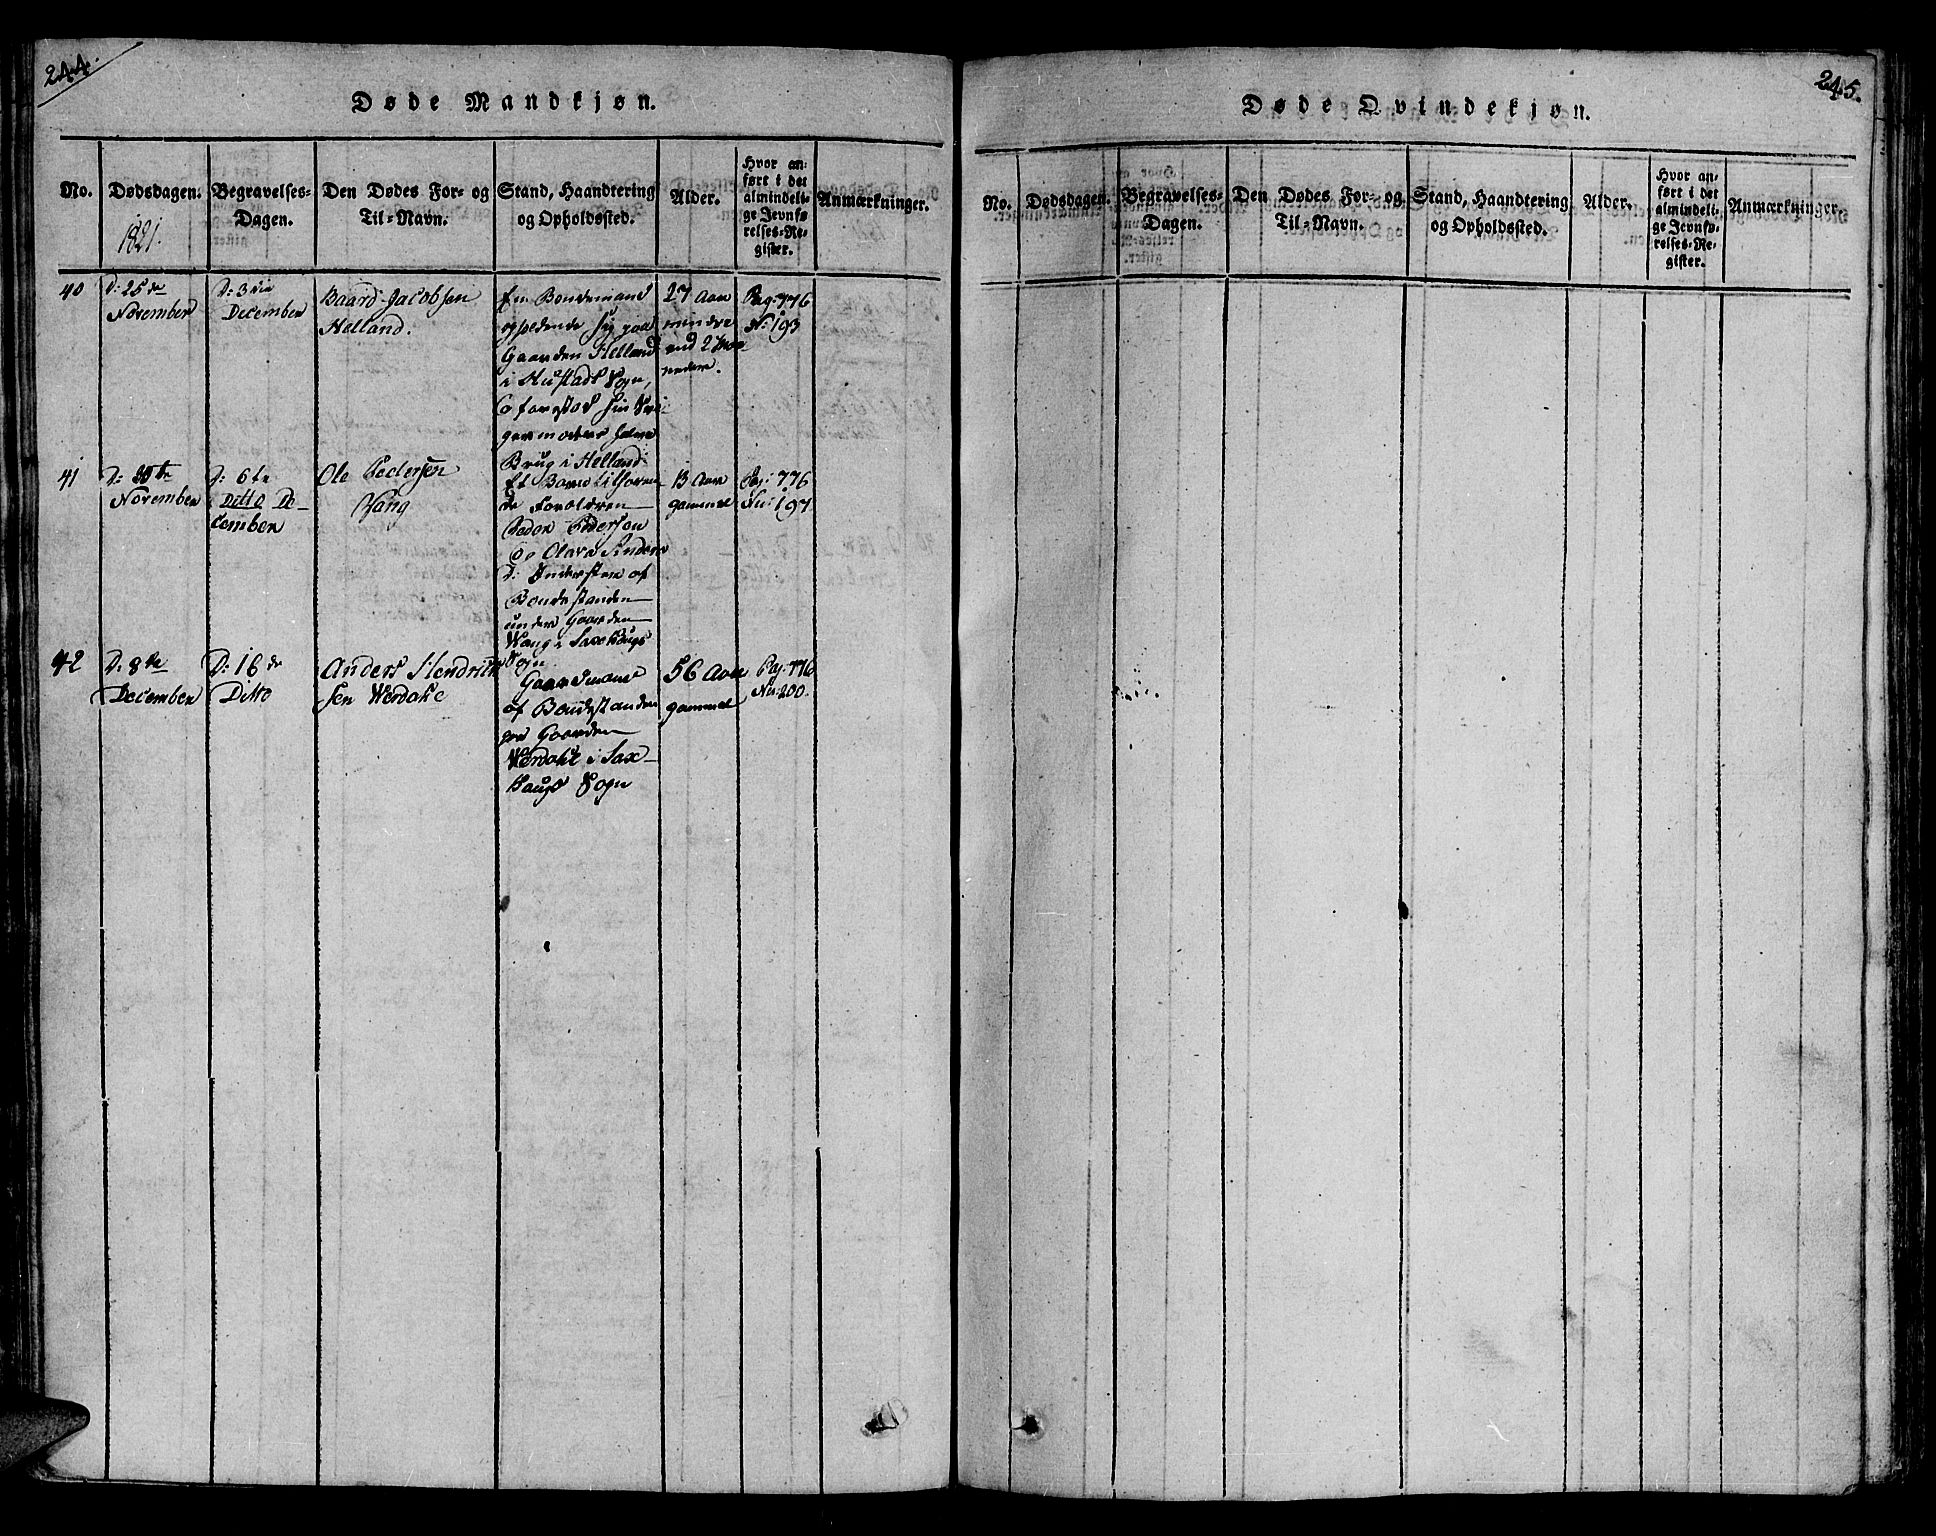 244.
Døde Mandkjøn.
No.
Dødsdagen.
1821.
Begravelses=
Dagen.
Den Dødes For= og
Til=Navn.
Stand, Haandtering
og Opholdssted.
Alder.
Hvor an=
ført i det
almindeli=
ge Jevnfø=
relses=Re=
gister.
Anmærkninger.
40
D: 25de
November
D: 3die
December
Baard Jacobsen
Helland.
En Bondemand
opholdende sig paa
Gaarden Helland
i Hustads Sogn,
og forestod sin Svi
germoders halve
Brug i Helland
27 Aar
mindre
end 2 Maa-
neder.
Pag: 776
No: 193
41
D: 30te
November
D: 6te
Ditto De-
cember
Ole Pedersen
Vang
Et Barn tilhøren-
de Forældren
Peder Pederson
og Olava
af
Bondestanden
under Gaarden
Wang i Saxhaugs
Sogn.
13 Aar
gammel
Pag: 776
No: 197
42
D: 8de
December
D: 16de
Ditto
Anders Hendrik
sen Werdahl
Gaardmand
af Bondestanden
paa Gaarden
Werdahl i Sax-
haugs Sogn
56 Aar
gammel
Pag: 776
No: 200.
245.
Døde Qvindekjøn.
No.
Dødsdagen.
Begravelses=
Dagen.
Den Dødes For= og
Til=Navn.
Stand, Haandtering
og Opholdssted.
Alder.
Hvor an=
ført i det
almindeli=
ge Jevnfø=
relses=Re=
gister.
Anmærkninger.